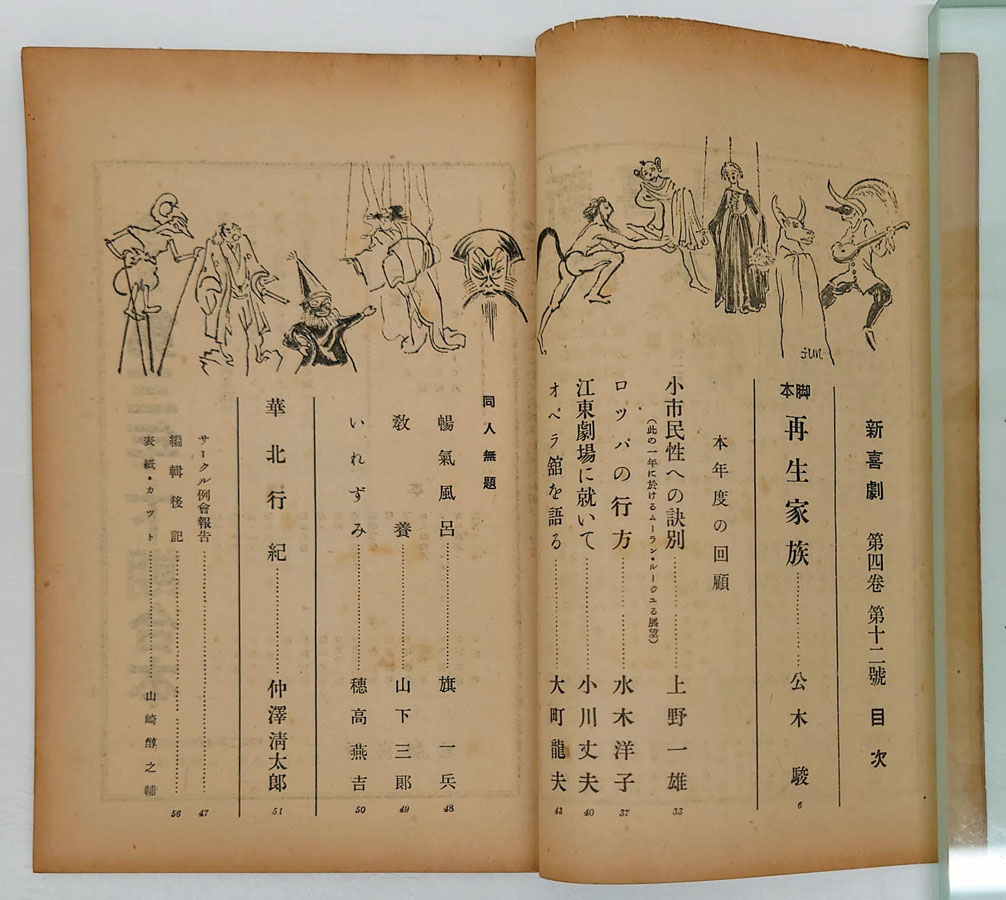 新喜劇 第四卷 第十二號 目次
脚本 再生家族 公木 駿 6
本年度の回顧
小市民性への訣別 上野一雄 33
(此の一年に於けるムーラン・ルージュる展望)
ロッパの行方 水木洋子 37
江東劇場に就いて 小川丈夫 40
オペラ舘を語る 大町龍夫 43
同人無題
暢氣風呂 旗 一兵 48
敎養 山下三郞 49
いれずみ 穗高燕吉 50
華北行紀 仲澤淸太郞 51
サークル例會報告 47
編輯後記 56
表紙・カット 山崎醇之輔
SUN